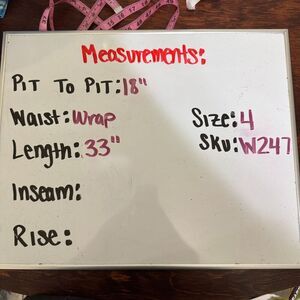 Measurements:
Pit To Pit: 18"
Waist: Wrap
Size: 4
Length: 33"
Sku: W247
Inseam:
Rise: